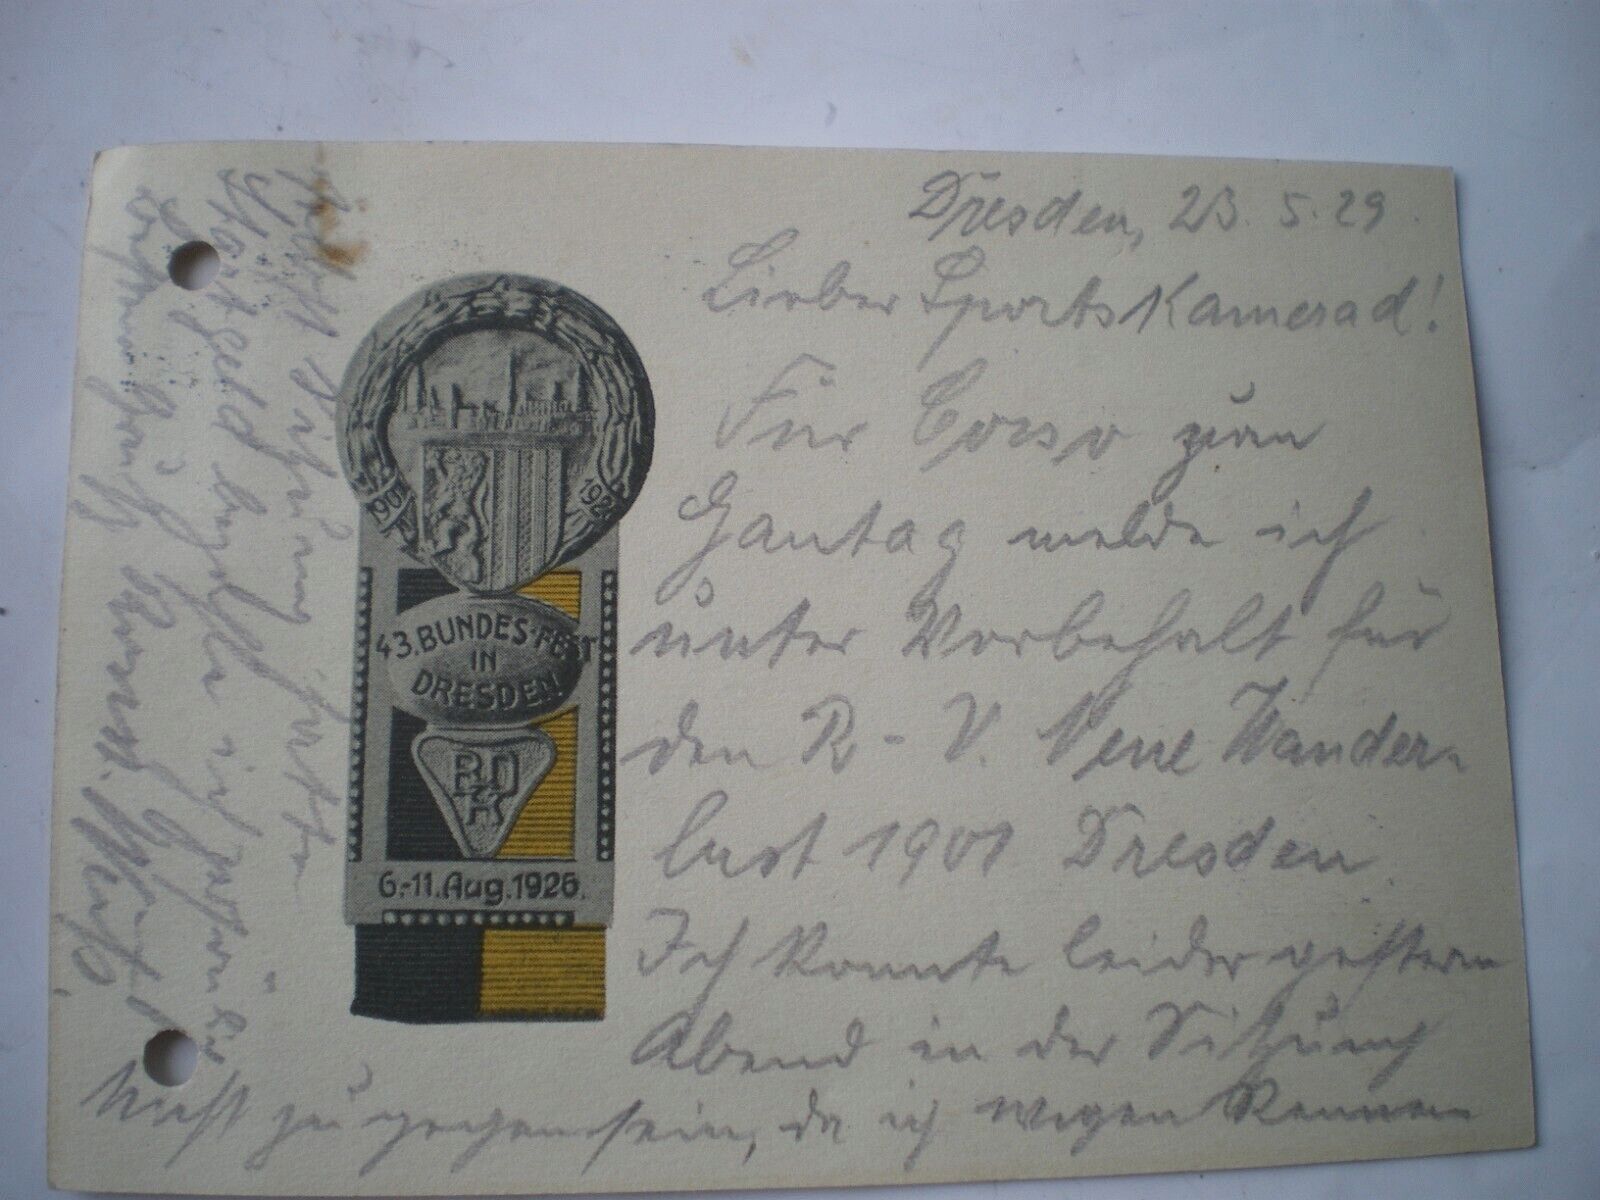 Dresden, 23. 5. 29.
Lieber Sportskamerad!
Für Corso zum
Gautag melde ich
unter Vorbehalt für
den R-V. Neue Wander-
lust 1901 Dresden.
Ich konnte leider gestern
Abend in der Sitzung
nicht zu gegen sein, da ich wegen Rennen
selbst Sitzung hatte
Startgeld bezahle ich
190
192
43. BUNDES-FEST
IN
DRESDEN
BDR
6.-11. Aug. 1926.